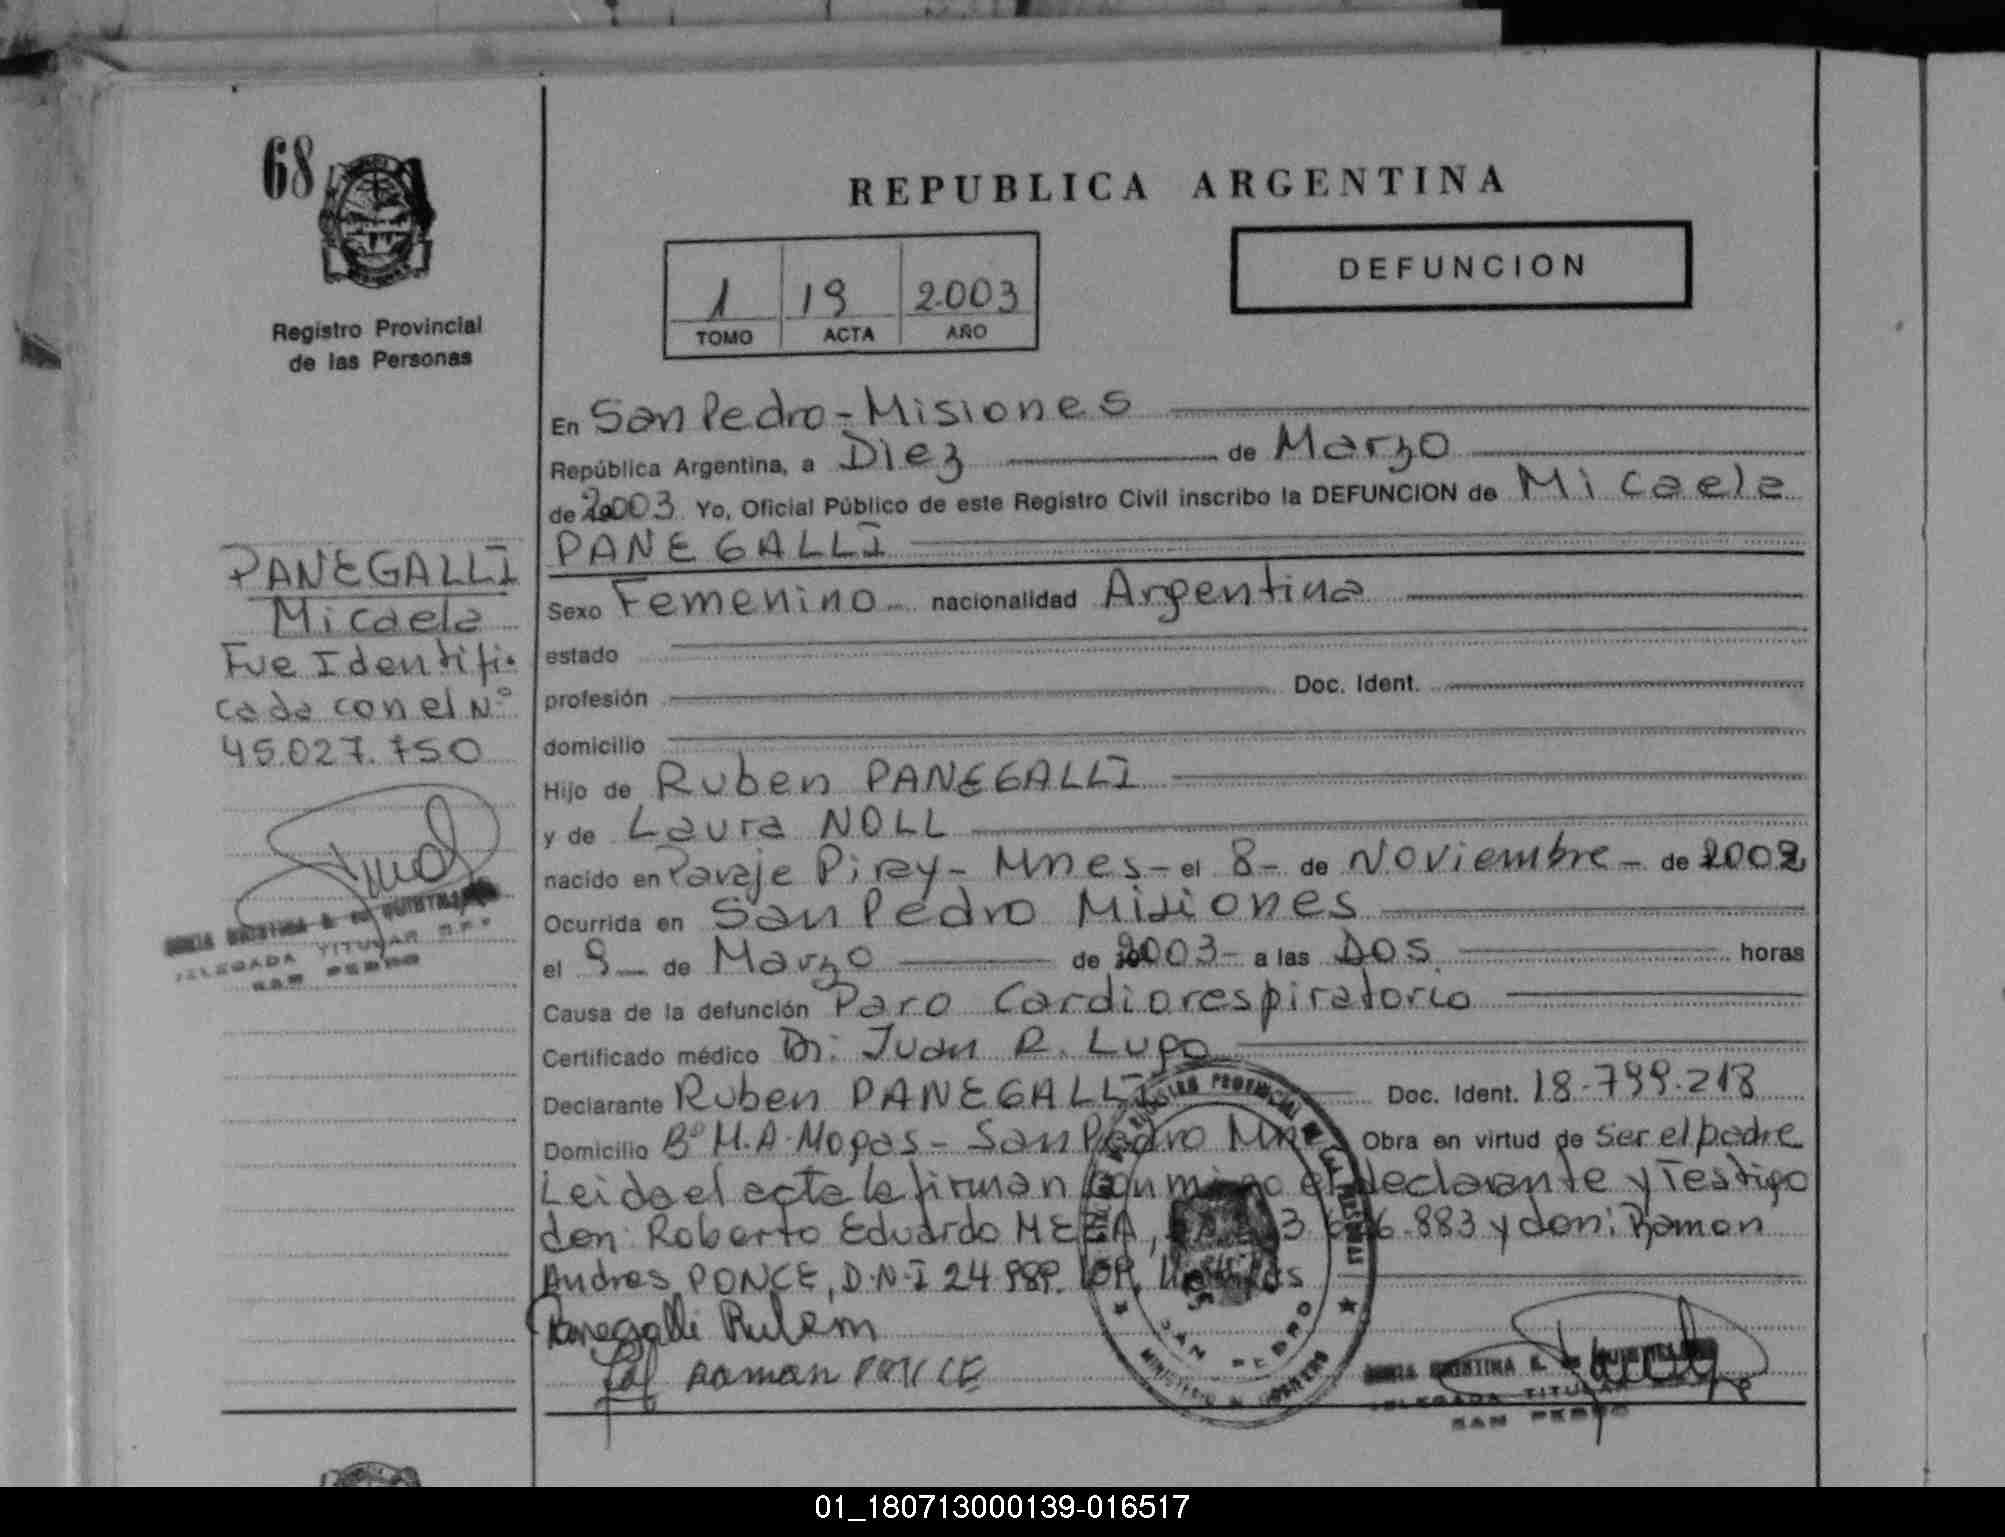 68
Registro Provincial
de las Personas
REPUBLICA ARGENTINA
DEFUNCION
1 19 2003
TOMO ACTA AÑO
En San Pedro - Misiones
República Argentina, a Diez de Marzo
de 2003 Yo, Oficial Público de este Registro Civil inscribo la DEFUNCION de Micaela
PANEGALLI
Sexo Femenino nacionalidad Argentina
estado
profesión Doc. Ident.
domicilio
Hijo de Ruben PANEGALLI
y de Laura NOLL
nacido en Paraje Piray - Mnes - el 8 - de Noviembre - de 2002
Ocurrida en San Pedro Misiones
el 9 de Marzo de 2003 - a las DOS horas
Causa de la defunción Paro Cardiorespiratorio
Certificado médico Dr. Juan R. Lupo
Declarante Ruben PANEGALLI Doc. Ident. 18.799.218
Domicilio Bº M.A. Mopas - San Pedro Mnes Obra en virtud de Ser el padre
Leida el acta la firman conmigo el declarante y Testigo
don: Roberto Eduardo 883 y don: Ramon
Andres PONCE, D.N.I 24.989.
Panegalli Rubem
Raman PONCE
PANEGALLI
Micaela
Fue Identifi-
cada con el Nº
45.027.750
DELEGADA TITULAR
SAN PEDRO
REGISTRO PROVINCIAL DE LAS PERSONAS
SAN PEDRO
MINISTERIO DE GOBIERNO
DELEGADA TITULAR
SAN PEDRO
01_180713000139-016517